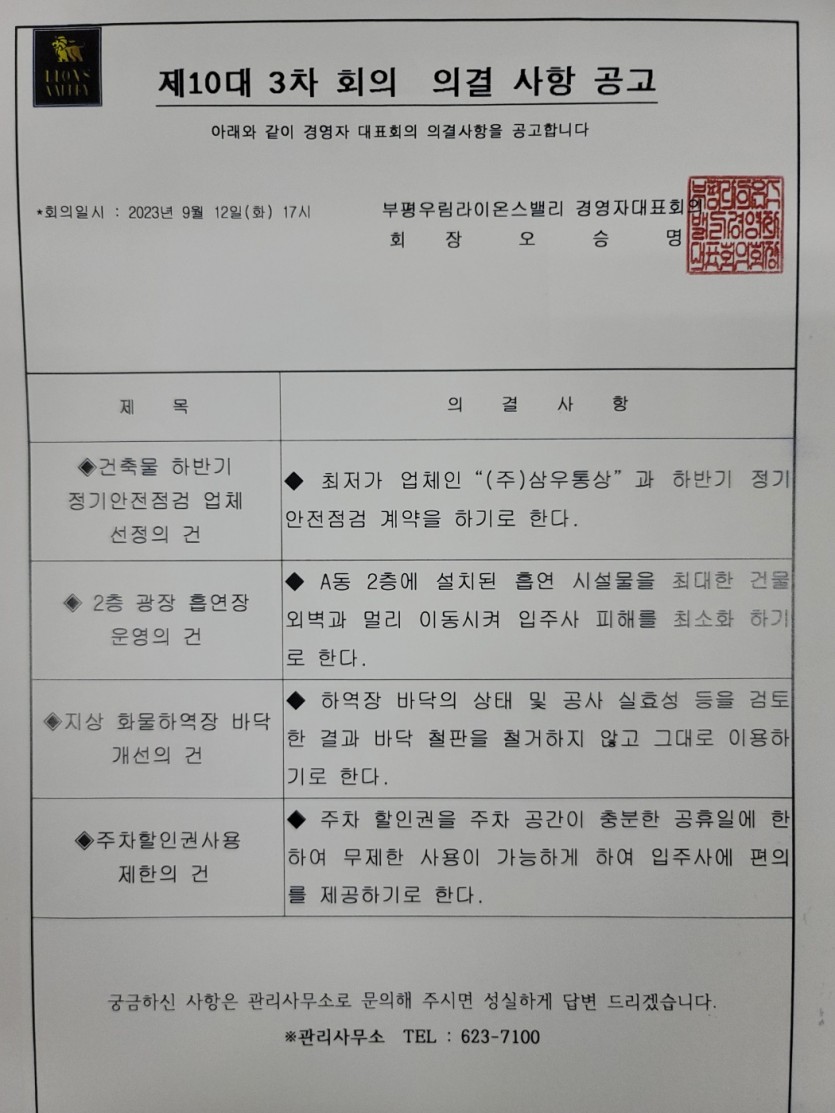 LIONS
VALLEY
제10대 3차 회의 의결 사항 공고
아래와 같이 경영자 대표회의 의결사항을 공고합니다
*회의일시 : 2023년 9월 12일(화) 17시
부평우림라이온스밸리 경영자대표회의
회 장 오 승 명
제 목
의 결 사 항
◈건축물 하반기
정기안전점검 업체
선정의 건
◆ 최저가 업체인 “(주)삼우통상” 과 하반기 정기
안전점검 계약을 하기로 한다.
◈ 2층 광장 흡연장
운영의 건
◆ A동 2층에 설치된 흡연 시설물을 최대한 건물
외벽과 멀리 이동시켜 입주사 피해를 최소화 하기
로 한다.
◈지상 화물하역장 바닥
개선의 건
◆ 하역장 바닥의 상태 및 공사 실효성 등을 검토
한 결과 바닥 철판을 철거하지 않고 그대로 이용하
기로 한다.
◈주차할인권사용
제한의 건
◆ 주차 할인권을 주차 공간이 충분한 공휴일에 한
하여 무제한 사용이 가능하게 하여 입주사에 편의
를 제공하기로 한다.
궁금하신 사항은 관리사무소로 문의해 주시면 성실하게 답변 드리겠습니다.
※관리사무소 TEL : 623-7100